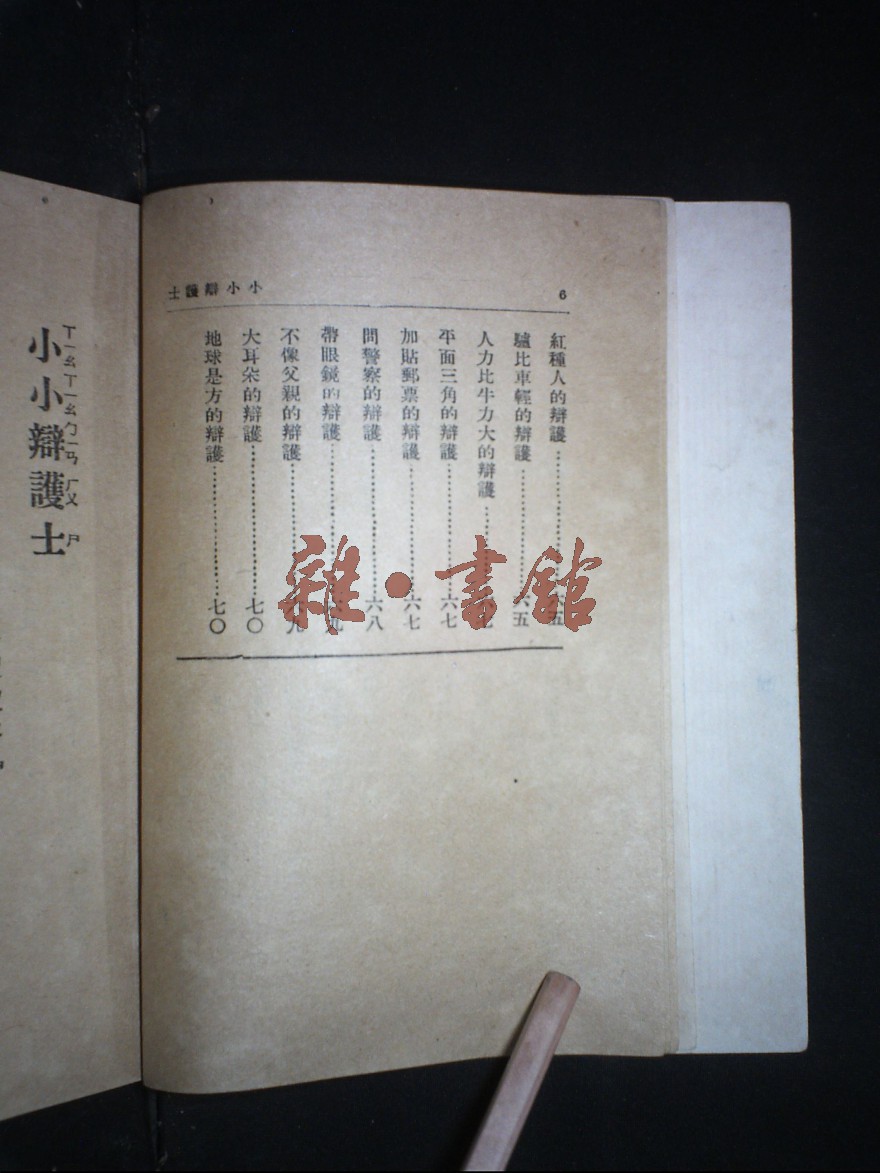 小小辯護士
6
紅種人的辯護……六五
驢比車輕的辯護……六五
人力比牛力大的辯護……
平面三角的辯護……六七
加貼郵票的辯護……六七
問警察的辯護……六八
帶眼鏡的辯護……六九
不像父親的辯護……六九
大耳朵的辯護……七〇
地球是方的辯護……七〇
小小辯護士
ㄒㄧㄠ ㄒㄧㄠ ㄅㄧㄢ ㄏㄨ ㄕ
雜·書館